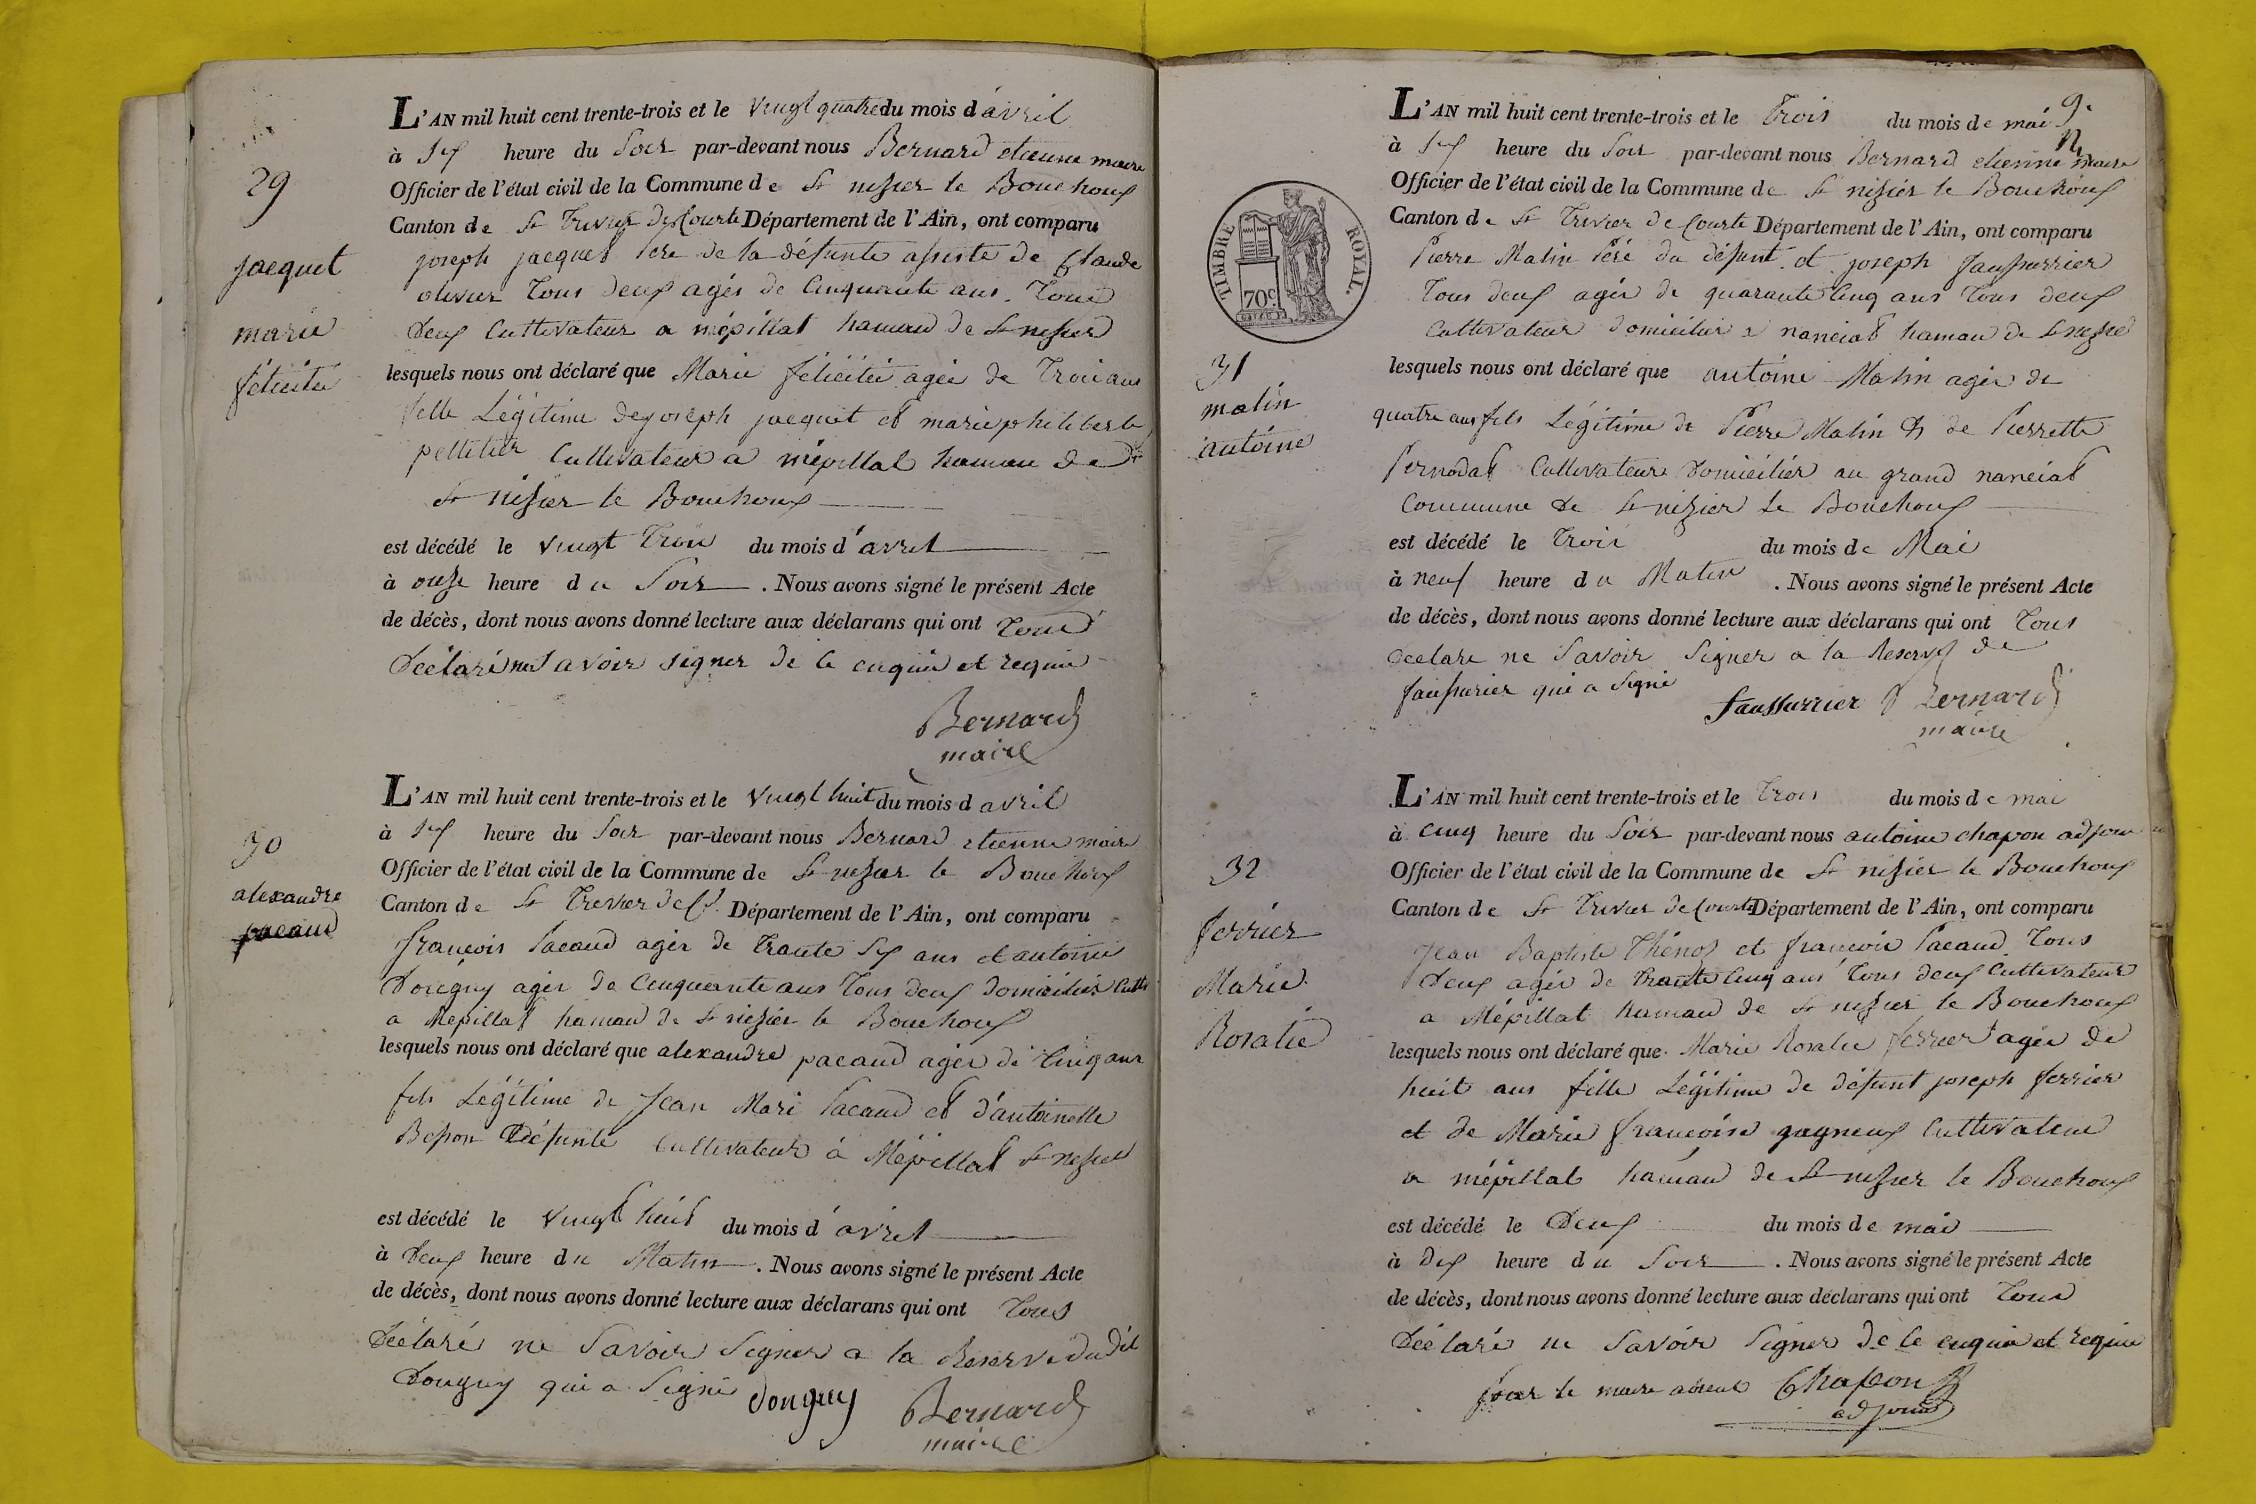 29
jacquet
marie
félicitée
L'AN mil huit cent trente-trois et le vingt quatre du mois d'avril
à six heure du Soir par-devant nous Bernard etienne maire
Officier de l'état civil de la Commune de St nisier le Bouchoux
Canton de St Trivier de Courte Département de l'Ain, ont comparu
joseph jacquet Père de la défunte assisté de Claude
olivier Tous deux agés de Cinquante ans. Tous
Deux Cultivateur a mépillat hamau de St nisier
lesquels nous ont déclaré que Marie félicitée agée de Trois ans
fille Légitime de joseph jacquet et marie philiberte
pelletier Cultivateur a mépillat hamau de
St nisier le Bouchoux
est décédé le vingt Trois du mois d'avril
à onse heure du Soir. Nous avons signé le présent Acte
de décès, dont nous avons donné lecture aux déclarans qui ont Tous
Déclaré ne Savoir signer de ce enquis et requis
Bernard
maire
30
alexandre
pacaud
L'AN mil huit cent trente-trois et le vingt huit du mois d avril
à six heure du Soir par-devant nous Bernard etienne maire
Officier de l'état civil de la Commune de St nisier le Bouchoux
Canton de St Trevier de Ct. Département de l'Ain, ont comparu
françois Pacaud agér de Trante six ans et antoine
Douguy agér de Cinquante ans Tous deux domiciliér Cultr
a Mépillat hamau de St nisier le Bouchoux
lesquels nous ont déclaré que alexandre pacaud agér de Cinq ans
fils Légitime de Jean Mari Pacaud et d'antoinette
Besson Défunte Cultivateur à Mépillat St nisier
est décédé le vingt huit du mois d'avril
à Deux heure du Matin. Nous avons signé le présent Acte
de décès, dont nous avons donné lecture aux déclarans qui ont Tous
Déclaré ne Savoir Signer a la Reserve dudit
Douguy qui a Signé Douguy Bernard
maire
9.
TIMBRE ROYAL.
70c
31
matin
antoine
L'AN mil huit cent trente-trois et le Trois du mois de mai
à six heure du Soir par-devant nous Bernard etienne maire
Officier de l'état civil de la Commune de St nisier le Bouchoux
Canton de St Trivier de Courte Département de l'Ain, ont comparu
Pierre Matin Péré du défunt et joseph faussurrier
Tous deux agér de quarante Cinq ans Tous deux
Cultivateur domicilier a nanciat hamau de St nisier
lesquels nous ont déclaré que antoine Matin agér de
quatre ans fils Légitime de Pierre Matin & de Pierrette
Pernodat Cultivateur Domicilier au grand nanciat
Commune de St nisier le Bouchoux
est décédé le Trois du mois de Mai
à neuf heure du Matin. Nous avons signé le présent Acte
de décès, dont nous avons donné lecture aux déclarans qui ont Tous
declare ne Savoir Signer a la Reserve de
faussurier qui a Signé faussurrier Bernard
maire
32
ferrier
Marie
Rosalie
L'AN mil huit cent trente-trois et le Trois du mois de mai
à cinq heure du Soir par-devant nous antoine chapon adjoin
Officier de l'état civil de la Commune de St nisier le Bouchoux
Canton de St Trivier de Courte Département de l'Ain, ont comparu
Jean Baptiste Thénoz et françois Pacaud Tous
Deux agér de Trante Cinq ans Tous deux Cultivateur
a Mépillat hamau de St nisier le Bouchoux
lesquels nous ont déclaré que Marie Rosalie ferrier agée de
huit ans fille Légitime de défunt joseph ferrier
et de Marie françoise gagneux Cultivateur
a mépillat hamau de St nisier le Bouchoux
est décédé le Deux du mois de mai
à dix heure du Soir. Nous avons signé le présent Acte
de décès, dont nous avons donné lecture aux déclarans qui ont Tous
Déclaré ne Savoir Signer de ce enquis et requis
pour le maire absent Chapon
adjoint